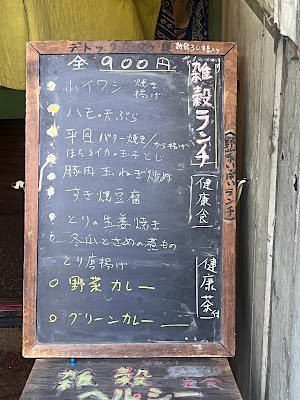 全 900円
ホイコウ 焼き 揚げ
ハモの天ぷら
平目 バター焼き/から揚げ
ほたるイカの玉子とじ
豚肉 玉ねぎ炒め
すき焼豆腐
とりの生姜焼き
冬瓜とさめの煮もの
とり唐揚げ
野菜カレー
グリーンカレー
雑穀ランチ
(野菜いっぱいランチ)
健康食
健康茶付
雑穀
ヘルシー